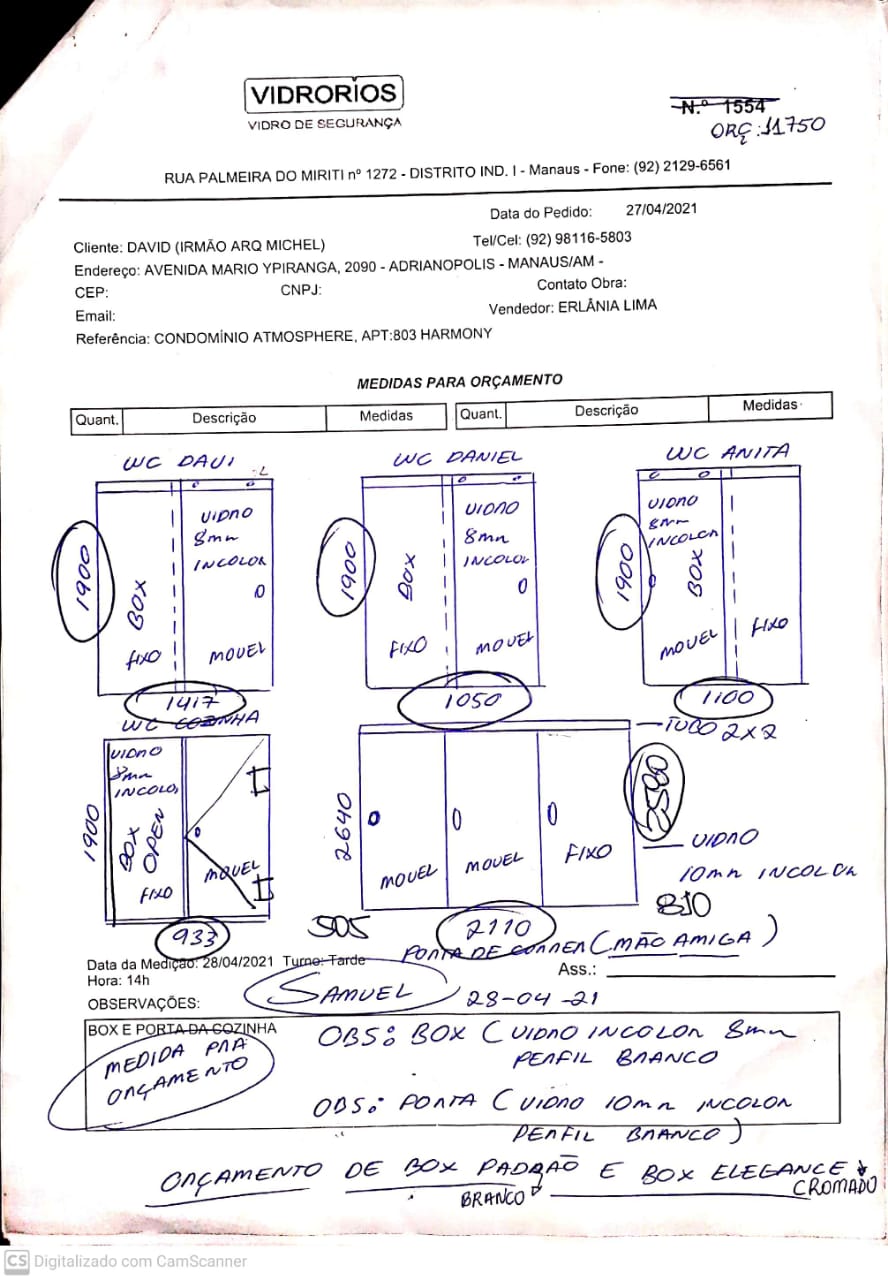 VIDRORIOS
VIDRO DE SEGURANÇA
N.º 1554
ORÇ:11750
RUA PALMEIRA DO MIRITI nº 1272 - DISTRITO IND. I - Manaus - Fone: (92) 2129-6561
Data do Pedido: 27/04/2021
Cliente: DAVID (IRMÃO ARQ MICHEL) Tel/Cel: (92) 98116-5803
Endereço: AVENIDA MARIO YPIRANGA, 2090 - ADRIANOPOLIS - MANAUS/AM -
CEP: CNPJ: Contato Obra:
Email: Vendedor: ERLÂNIA LIMA
Referência: CONDOMÍNIO ATMOSPHERE, APT:803 HARMONY
MEDIDAS PARA ORÇAMENTO
Quant. Descrição Medidas Quant. Descrição Medidas
WC DAVI
VIDRO
8mm
INCOLOR
1900
BOX
FIXO MOVEL
1417
WC DANIEL
VIDRO
8mm
INCOLOR
1900
BOX
FIXO MOVEL
1050
WC ANITA
VIDRO
8mm
INCOLOR
1900
BOX
MOVEL FIXO
1100
WC COZINHA
VIDRO
8mm
INCOLOR
1900
BOX
OPEN
FIXO MOVEL
933
TUBO 2X2
2640
MOVEL MOVEL FIXO
VIDRO
10mm INCOLOR
810
505
2110
PORTA DE CORRER (MÃO AMIGA)
Data da Medição: 28/04/2021 Turno: Tarde
Ass.:
Hora: 14h
OBSERVAÇÕES:
SAMUEL 28-04-21
BOX E PORTA DA COZINHA
MEDIDA PRA
ORÇAMENTO
OBS: BOX (VIDRO INCOLOR 8mm
PERFIL BRANCO
OBS: PORTA (VIDRO 10mm INCOLOR
PERFIL BRANCO)
ORÇAMENTO DE BOX PADRÃO E BOX ELEGANCE
BRANCO
CROMADO
CS Digitalizado com CamScanner